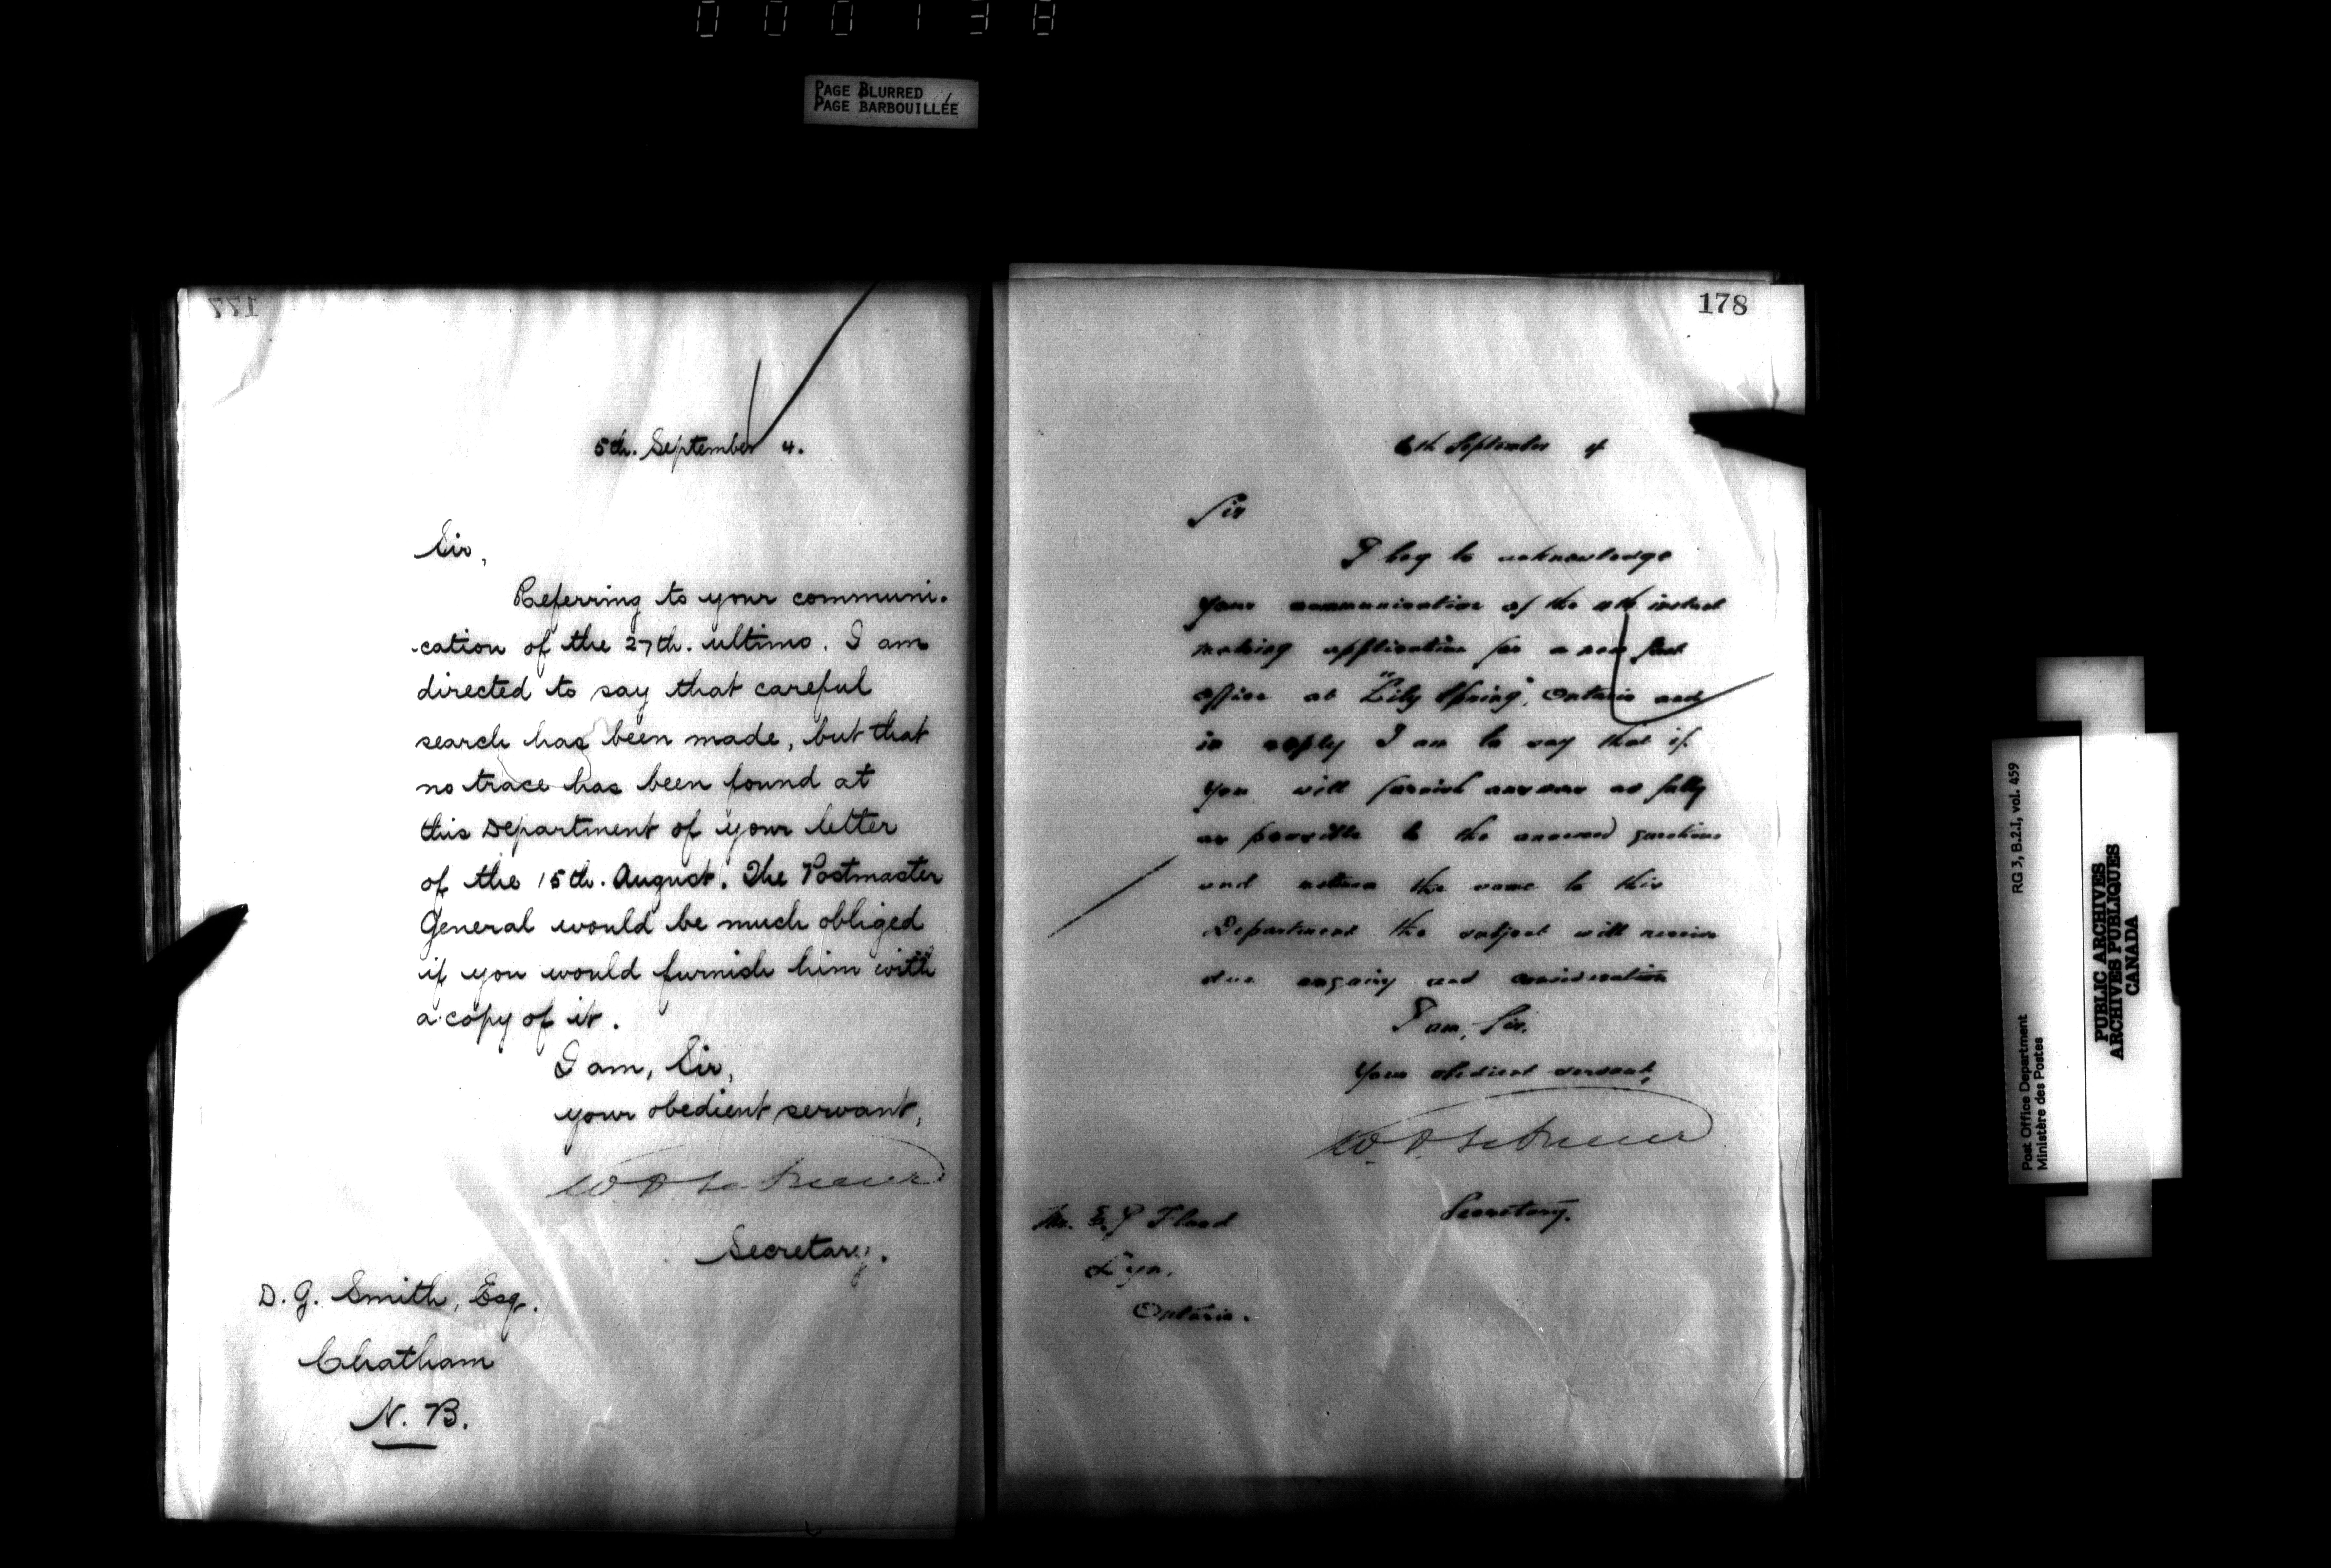 000138
PAGE BLURRED
PAGE BARBOUILLÉE
177
5th. September 4.
Sir,
Referring to your communi-
-cation of the 27th. ultimo. I am
directed to say that careful
search has been made, but that
no trace has been found at
this Department of your letter
of the 15th. August. The Postmaster
General would be much obliged
if you would furnish him with
a copy of it.
I am, Sir,
your obedient servant,
Secretary.
D. G. Smith, Esq.
Chatham
N. B.
178
6th September 4
Sir
I beg to acknowledge
your communication of the 4th instant
making application for a new post
office at "Lily Spring", Ontario and
in reply I am to say that if
you will furnish answers as fully
as possible to the annexed questions
and return the same to this
Department the subject will receive
due enquiry and consideration
I am, Sir,
Your obedient servant,
Secretary.
Mr. E. J Flood
Lyn,
Ontario.
RG 3, B.2.I, vol. 459
Post Office Department
Ministère des Postes
PUBLIC ARCHIVES
ARCHIVES PUBLIQUES
CANADA